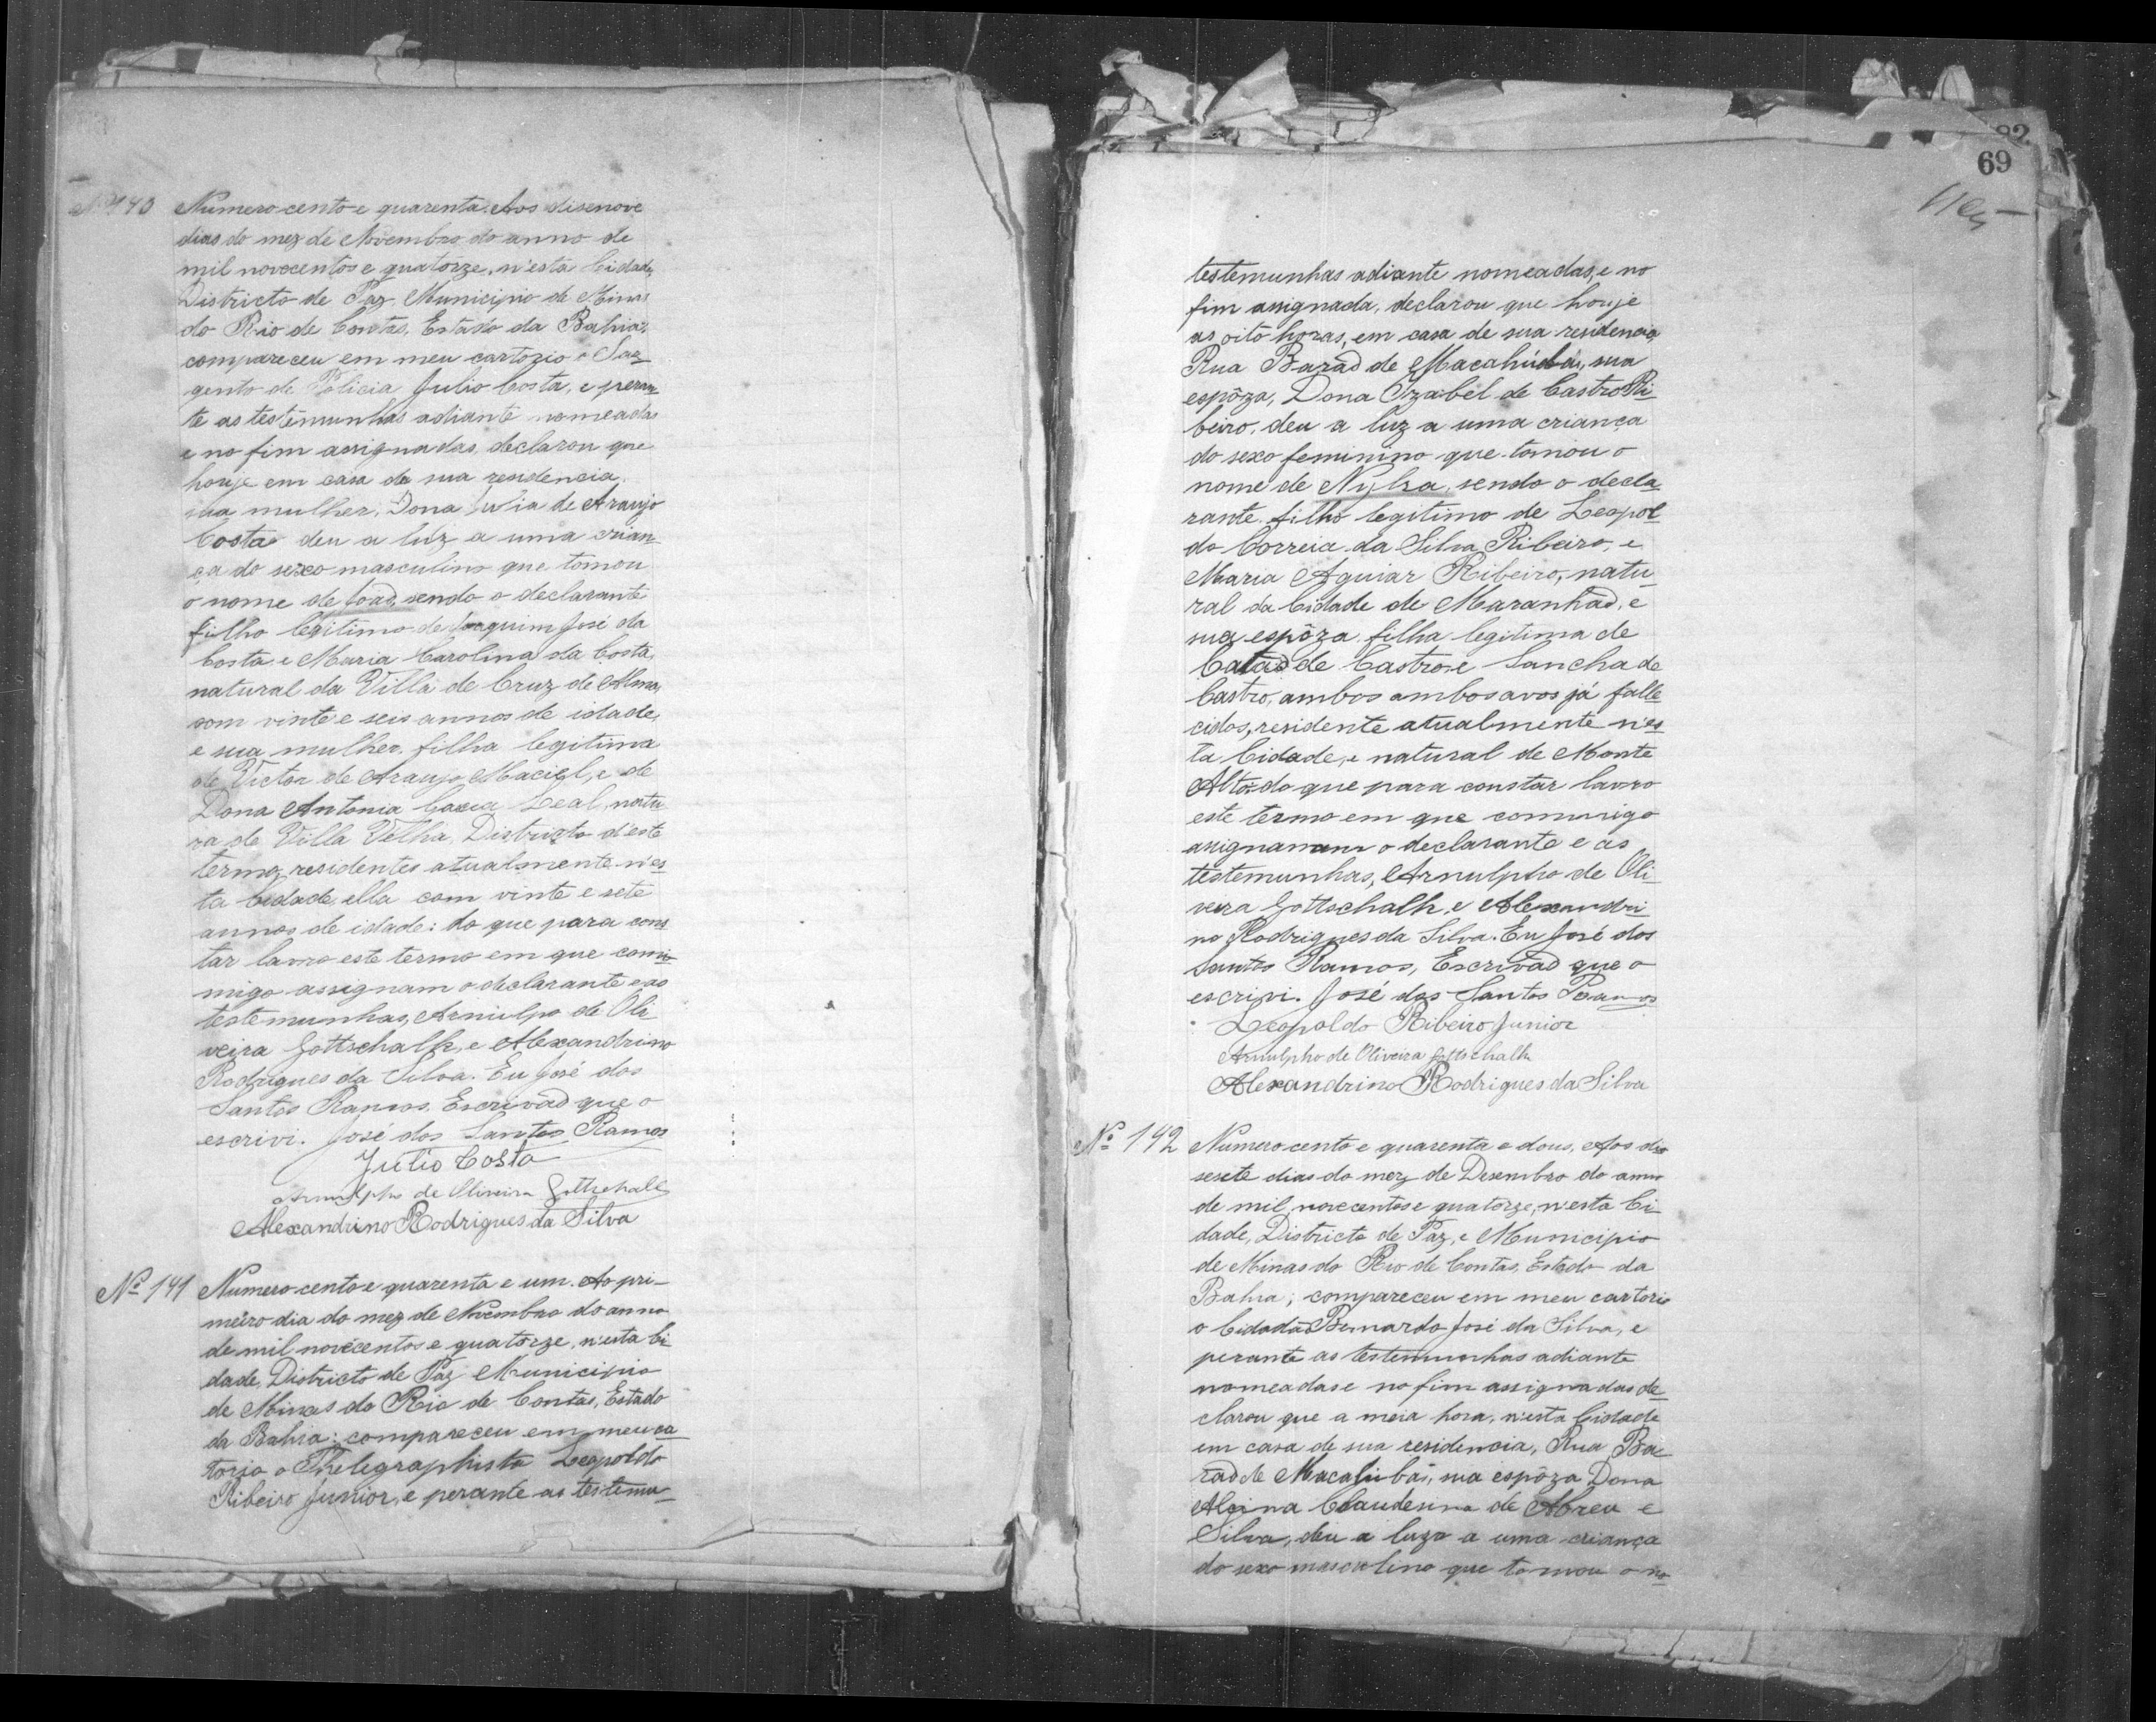 Nº 140
Numero cento e quarenta. Aos disenove
dias do mez de Novembro do anno de
mil novecentos e quatorze, n'esta Cidade,
Districto de Paz, Municipio de Minas
do Rio de Contas, Estado da Bahia,
compareceu em meu cartorio o Sar_
gento de Policia Julio Costa, e peran_
te as testemunhas adiante nomeadas
e no fim assignadas, declarou que
houje em casa de sua residencia,
sua mulher, Dona Livia de Araujo
Costa deu a luz a uma crian_
ça do sexo masculino que tomou
o nome de João, sendo o declarante
filho legitimo de Joaquim José da
Costa e Maria Carolina da Costa,
natural da Villa de Cruz de Alma,
com vinte e seis annos de idade,
e sua mulher, filha legitima
de Victor de Araujo Maciel, e de
Dona Antonia Leal, natu
ra de Villa Velha, Districto d'este
termo, residentes atualmente n'es_
ta Cidade, ella com vinte e sete
annos de idade: do que para cons
tar lavro este termo em que com_
migo assignam o declarante e as
testemunhas, Arnulpo de Oli_
veira Gottschalk, e Alexandrino
Rodrigues da Silva. Eu José dos
Santos Ramos, Escrivão que o
escrivi. José dos Santos Ramos
Julio Costa
Arnulpho de Oliveira Gottschalk
Alexandrino Rodrigues da Silva
Nº 141
Numero cento e quarenta e um. Ao pri_
meiro dia do mez de Novembro do anno
de mil novecentos e quatorze, n'esta Ci
dade, Districto de Paz Municipio
de Minas do Rio de Contas, Estado
da Bahia; compareceu em meu ca_
torio o Thelegraphista Leopoldo
Ribeiro Junior, e perante as testemu_
82
69
testemunhas adiante nomeadas, e no
fim assignada, declarou que houje
as oito horas, em casa de sua residencia,
Rua Barão de Macahúbas, sua
espôza, Dona Izabel de Castro Ri_
beiro, deu a luz a uma criança
do sexo feminino que tomou o
nome de Nylza, sendo o decla_
rante filho legitimo de Leopol_
do Correia da Silva Ribeiro, e
Maria Aguiar Ribeiro, natu_
ral da Cidade de Maranhão, e
sua espôza filha legitima de
Catão de Castro, e Sancha de
Castro, ambos ambos avos já falle_
cidos, residente atualmente n'es_
ta Cidade, e natural de Monte
Alto: do que para constar lavro
este termo em que commigo
assignaram o declarante e as
testemunhas, Arnulpho de Oli_
veira Gottschalk, e Alexandri_
no Rodrigues da Silva. Eu José dos
Santos Ramos, Escrivão que o
escrivi. José dos Santos Ramos
Leopoldo Ribeiro Junior
Arnulpho de Oliveira Gottschalk
Alexandrino Rodrigues da Silva
Nº 142
Numero cento e quarenta e dous. Aos des
sesete dias do mez de Desembro do anno
de mil novecentos e quatorze, n'esta Ci_
dade, Districto de Paz, e Municipio
de Minas do Rio de Contas, Estado da
Bahia; compareceu em meu cartorio
o Cidadão Bernardo José da Silva, e
perante as testemunhas adiante
nomeadas e no fim assignadas de_
clarou que a meia hora, n'esta Cidade
em casa de sua residencia, Rua Ba_
rão de Macahúbas, sua espôza Dona
Alcina Claudesina de Abreu e
Silva, deu a luza a uma criança
do sexo masculino que tomou o no_